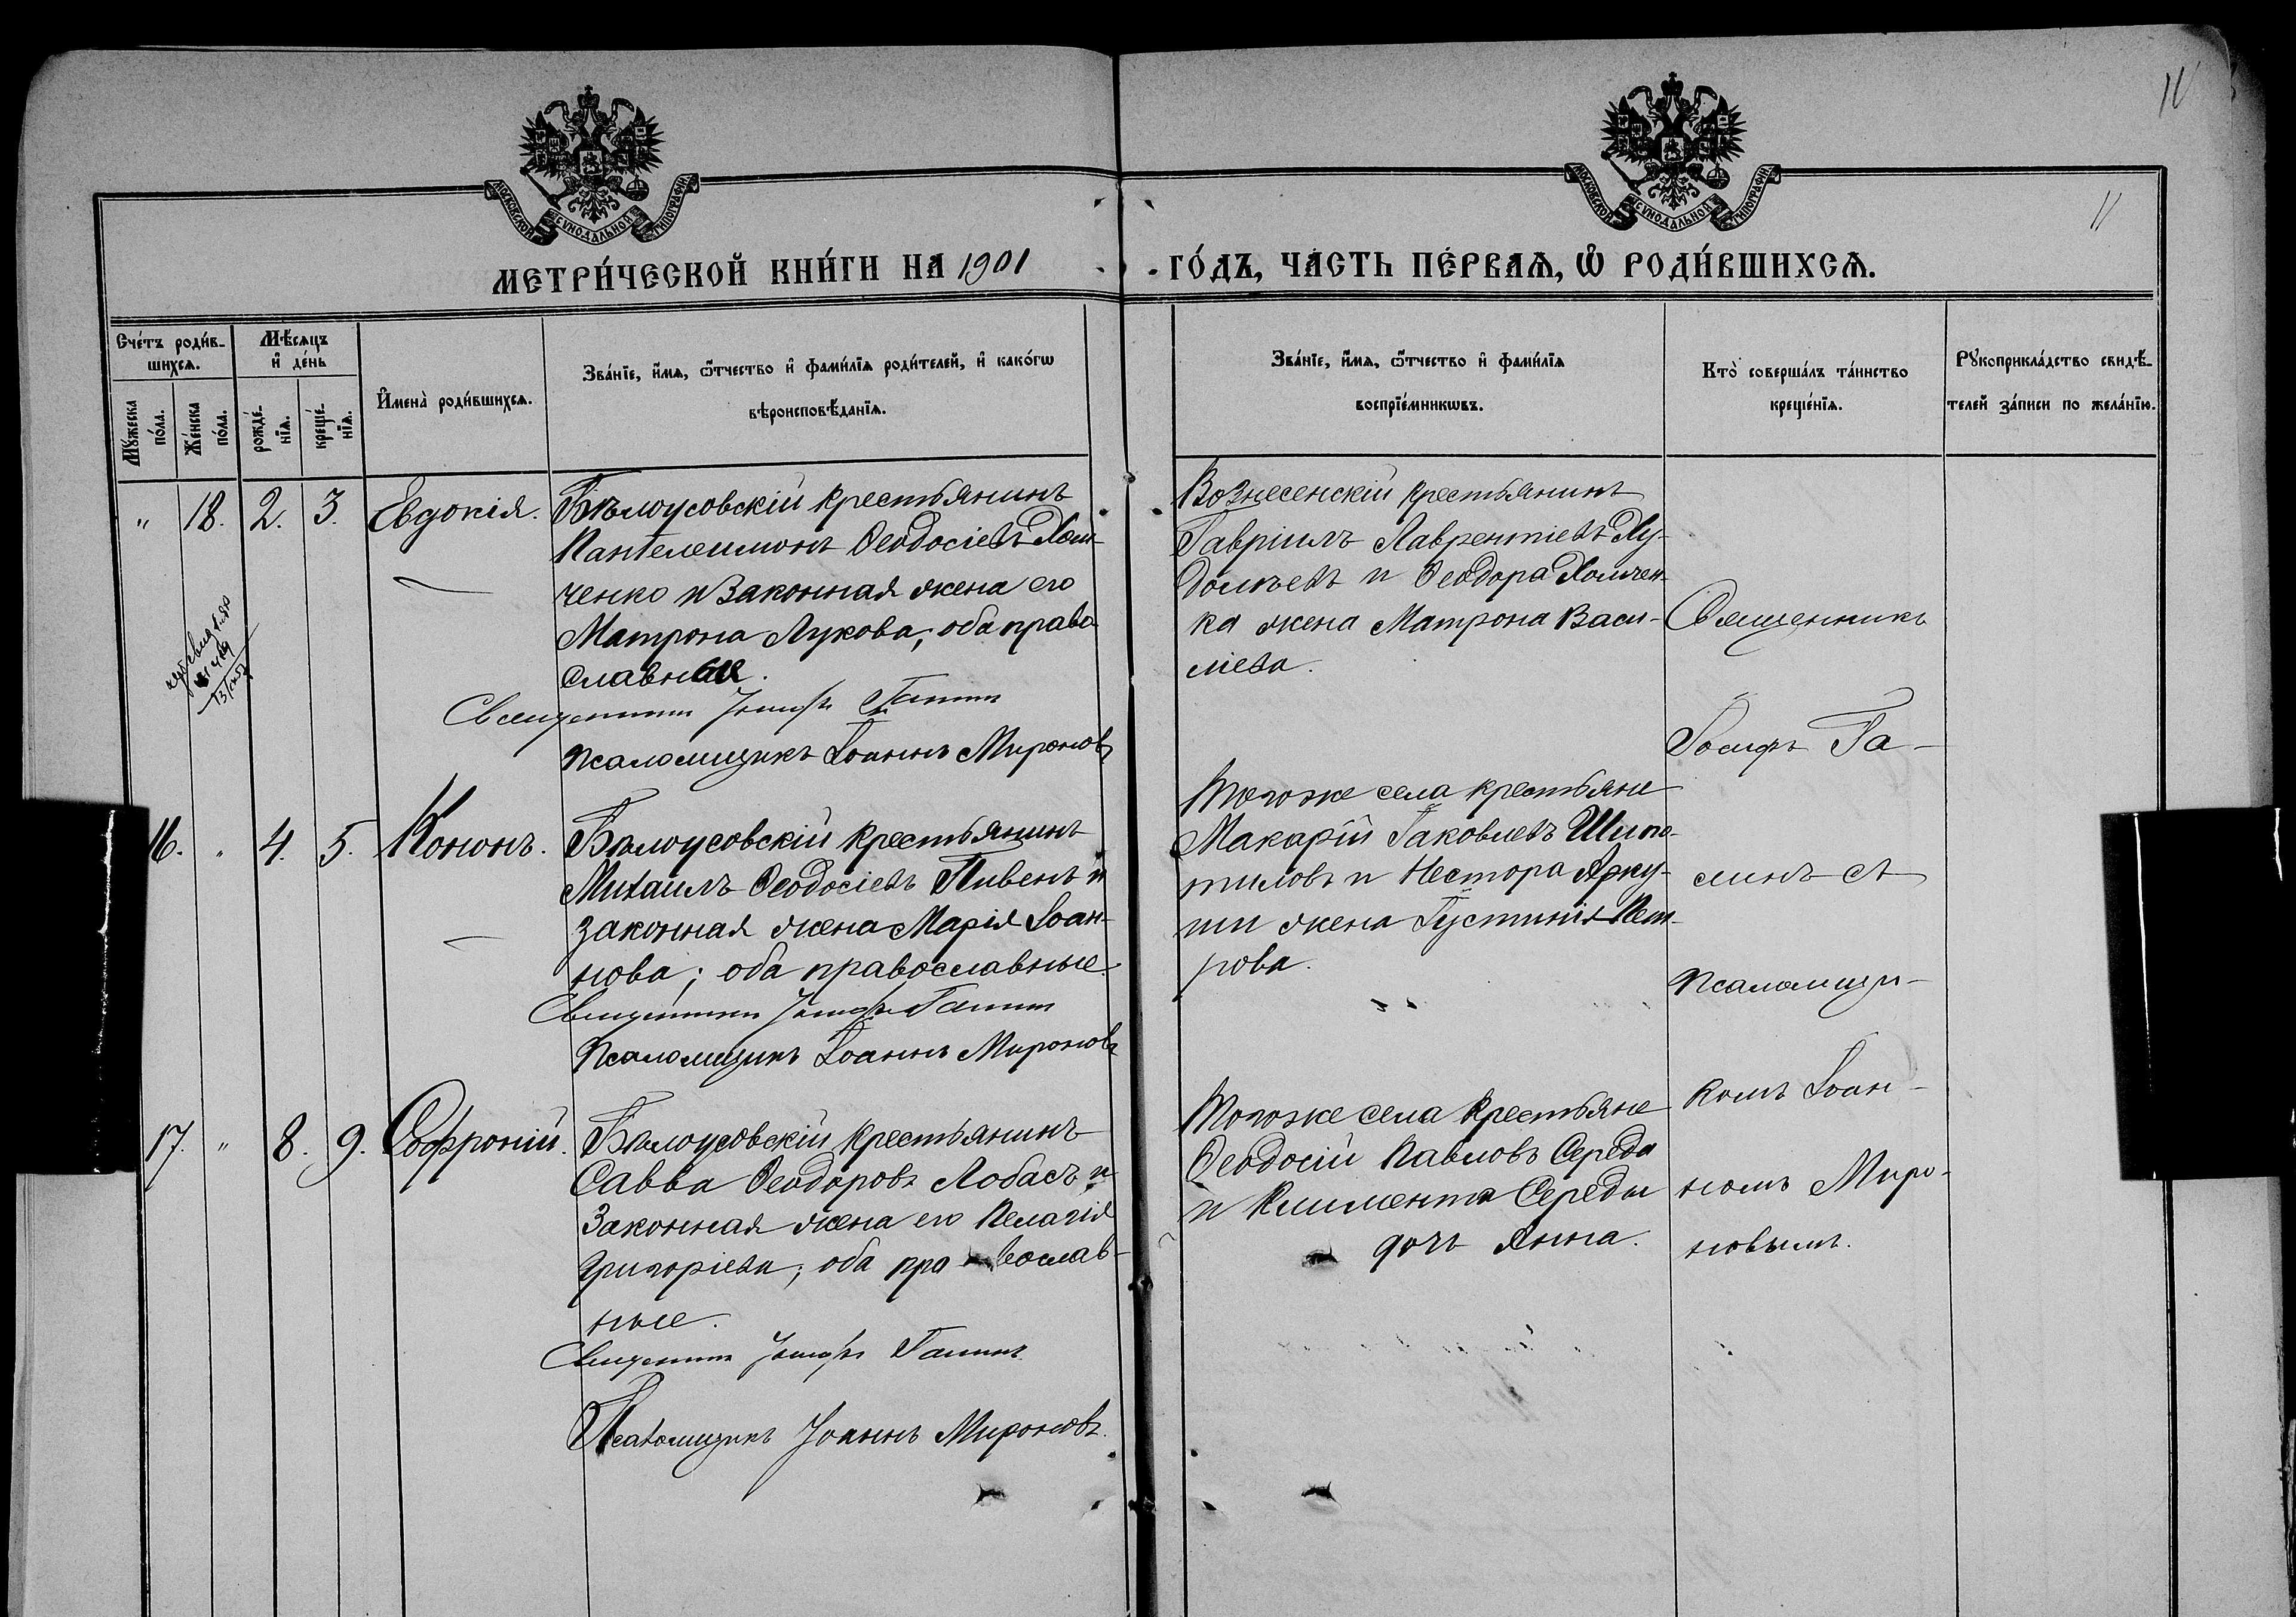 11
МОСКОВСКОЙ СѴНОДАЛЬНОЙ ТИПОГРАФІИ
МОСКОВСКОЙ СѴНОДАЛЬНОЙ ТИПОГРАФІИ
11
МЕТРИ́ЧЕСКОЙ КНИ́ГИ НА 1901
ГО́ДЪ, ЧА́СТЬ ПЕ́РВАѦ, Ѡ҆ РОДИ́ВШИХСѦ.
Сче́тъ роди́в-
шихсѧ.
Мꙋ́жеска
по́ла.
Же́нска
по́ла.
Мѣ́сѧцъ
и҆ де́нь
рожде́-
нїѧ.
креще́-
нїѧ.
И҆мена̀ роди́вшихсѧ.
Зва́нїе, и҆́мѧ, ѻ҆́тчество и҆ фами́лїѧ роди́телей, и҆ како́гѡ
вѣроисповѣ́данїѧ.
Зва́нїе, и҆́мѧ, ѻ҆́тчество и҆ фами́лїѧ
воспрїе́мникѡвъ.
Кто̀ соверша́лъ та́инство
креще́нїѧ.
Рꙋкоприкла́дство свидѣ́-
телей за́писи по жела́нїю.
" 18. 2. 3. Евдокія.
Бѣлоусовскій крестьянинъ
Пантелеимонъ Ѳеодосіевъ Хом-
ченко и законная жена его
Матрона Лукова; оба право
славные.
Священникъ Іосифъ Галинъ
Псаломщикъ Іоаннъ Мироновъ
Вознесенскій крестьянинъ
Гавріилъ Лаврентіевъ Ху-
долѣевъ и Ѳеодора Хомчен-
ка жена Матрона Васи-
ліева.
16. " 4. 5. Кононъ.
Бѣлоусовскій крестьянинъ
Михаилъ Ѳеодосіевъ Пивень и
законная жена Марія Іоан-
нова; оба православные.
Священникъ Іосифъ Галинъ
Псаломщикъ Іоаннъ Мироновъ
Тогоже села крестьяне
Макарій Іаковлевъ
и Нестора Арку-
ши жена Іустинія Пет-
рова.
17. " 8. 9. Софроній.
Бѣлоусовскій крестьянинъ
Савва Ѳеодоровъ Лобасъ и
законная жена его Пелагія
Григоріева; оба православ-
ные.
Священникъ Іосифъ Галинъ
Псаломщикъ Іоаннъ Мироновъ.
Тогоже села крестьяне
Ѳеодосій Павловъ Середа
и Климента Середы
дочь Анна.
Священникъ
Іосифъ Га-
линъ съ
псаломщи-
комъ Іоан-
номъ Миро-
новымъ.